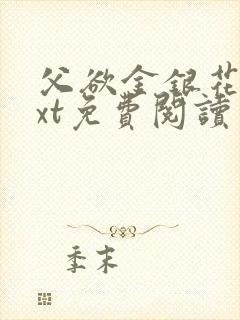 父欲金銀花
xt免費閱讀
季末